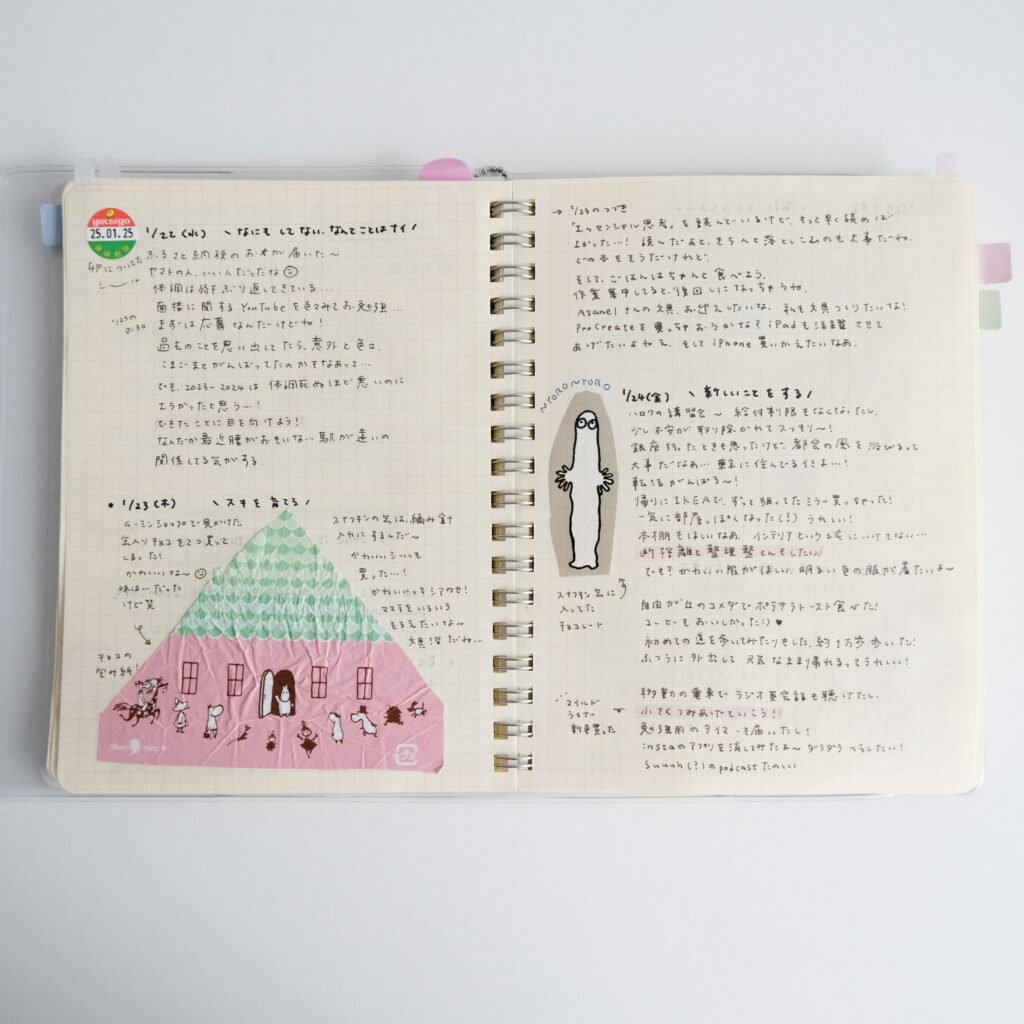 yachiyo
25.01.25
賞味期限
卵についてた
シール
1/22(水) \ なにもしてない、なんてことはナイ /
ふるさと納税のお米が届いた〜
ヤマトの人、いい人だったな
体調は弱干ぶり返してきている…
面接に関するYouTubeを色々みてお勉強…
1/23の
0:30
まずは応募なんだけどね!
過去のことを思い出してたら、意外と色々、
こまごまとがんばってたのかもなあって…
でも、2023-2024は体調死ぬほど悪いのに
エラかったと思う…!
できたことに目を向けよう!
なんだか最近腰がおもいな、駅が遠いの
関係してる気がする.
• 1/23(木) \ スキを育てる /
ムーミンショップで見かけた
缶入りチョコをつい買って
しまった!
かわいいな〜
味は…だった
けど笑
チョコの
包み紙!
スナフキンの缶は、編み針
入れにするんだ〜
かわいいシールも
買った…!
かわいいってシアワセ!
マステもいろいろ
そろえたいな〜
文具沼だね…
→ 1/23のつづき
『エッセンシャル思考』を読んでいるけど、もっと早く読めば
よかった…! 読んだあと、きちんと落としこむのも大事だね.
どの本もそうだけれど.
そして、ごはんはちゃんと食べよう.
作業集中してると、後回しになっちゃうね.
Asanelさんの文具、お迎えしたいな、私も文具つくりたいな!
ProCreateを買っちゃおうかな? iPadも活躍させて
あげたいよねえ、そしてiPhone買いかえたいなあ.
〜NYORO〜NYORO
スナフキン缶に
入ってた
チョコレート
1/24(金) \ 新しいことをする /
ハロワの講習会〜 給付制限もなくなったし、
少し不安が取り除かれてスッキリ〜!
銀座行ったときも思ったけど、都会の風を浴びるって
大事だなあ… 東京に住んでるうちよ…!
転活がんばろ〜!
帰りにIKEAで、ずっと狙ってたミラー買っちゃった!
一気に部屋っぽくなった(?) うれしい!
本棚もほしいなあ、インテリアという沼にいけてない…
断捨離と整理整とんもしたい!
でも?かわいい服がほしい、明るい色の服が着たいよ〜
自由が丘のコメダでポテサラトースト食べた!
コーヒーもおいしかった:) ♥
初めての道を歩いてみたりもした、約1万歩歩いた!
ふつうに外出して、元気なまま帰れるってうれしい!
マイルド
ライナー
新色買った
移動の電車でラジオ英会話も聴けたし、
小さくつみあげていこう!
勉強用のタイマーも届いたし!
instaのアプリを消してみたよ〜 ダラダラへらしたい!
Suuuh(?)のpodcastたのしい
プラ